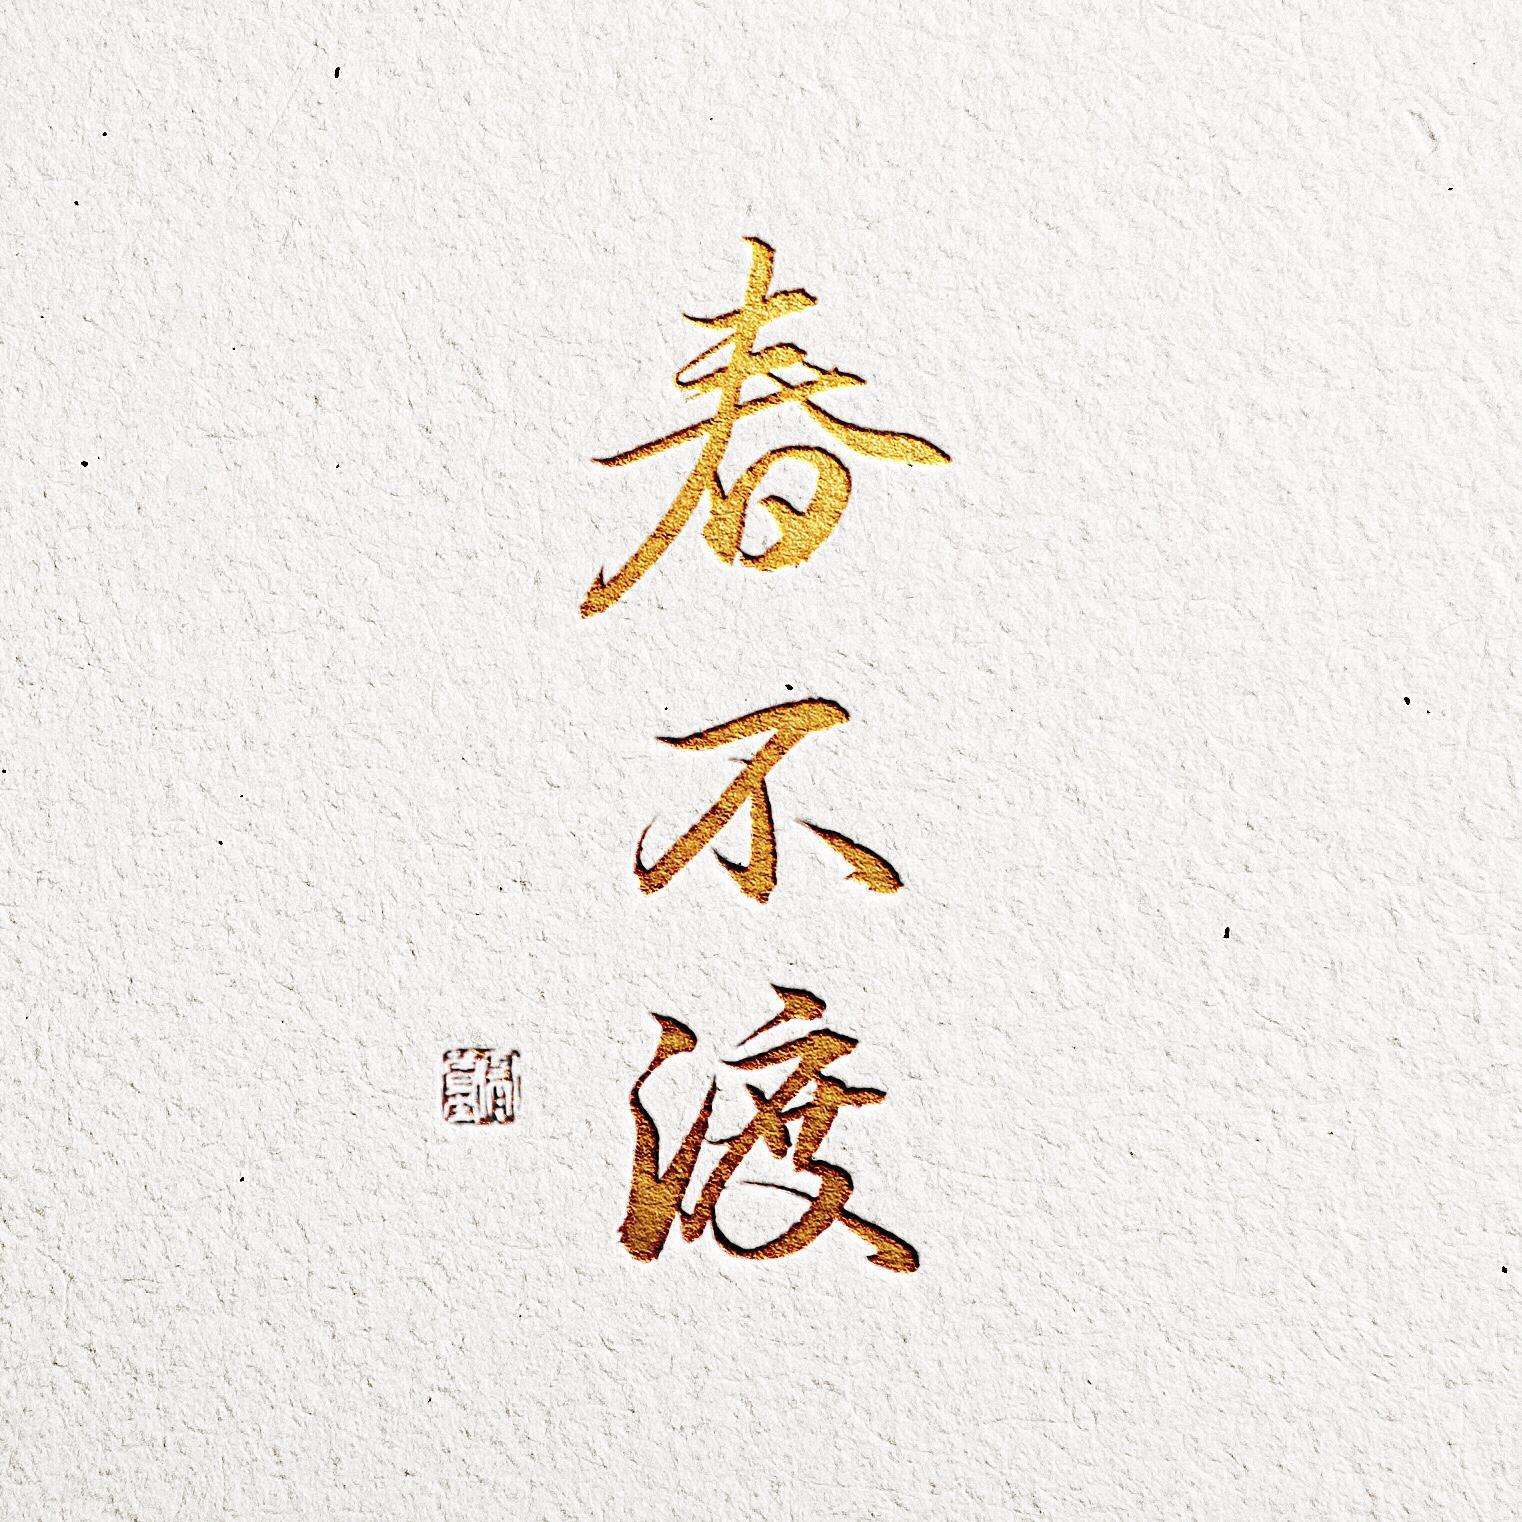 春不渡